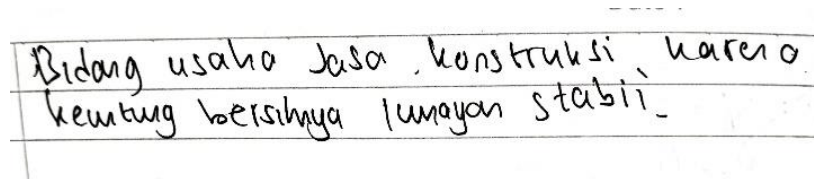 Bidang usaha Jasa konstruksi karena
keuntung bersihnya lumayan stabil.